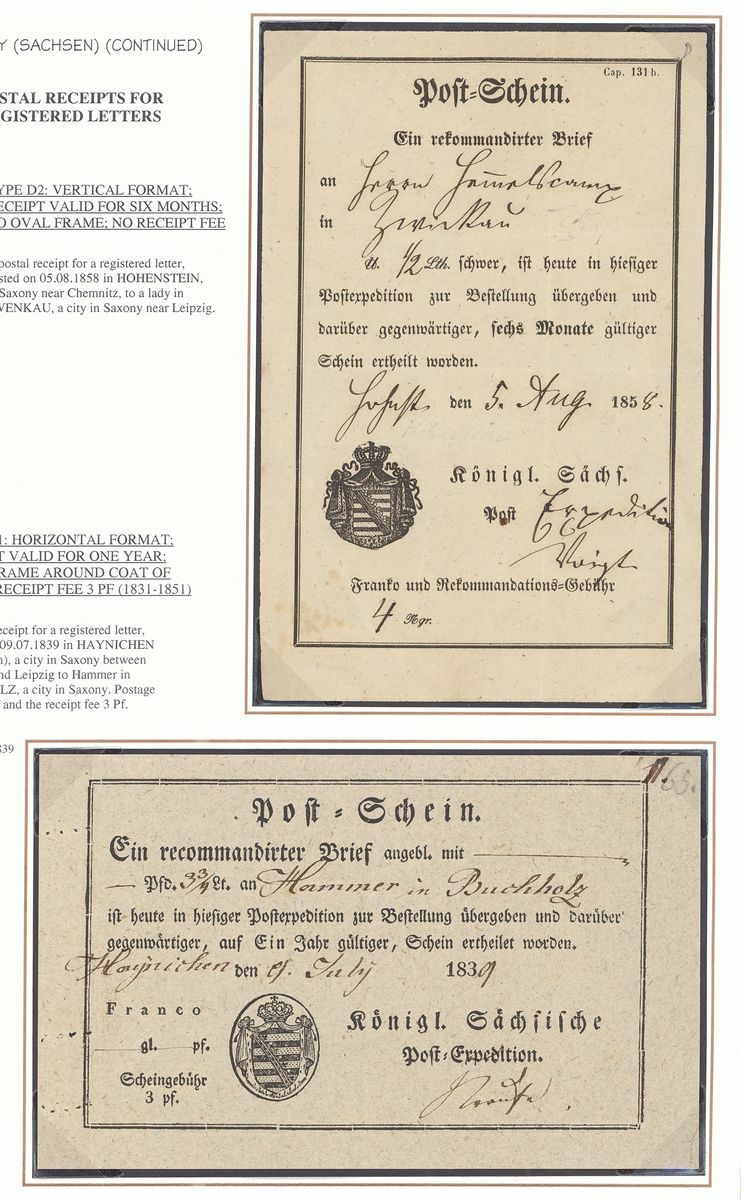 Y (SACHSEN) (CONTINUED)
STAL RECEIPTS FOR
GISTERED LETTERS
YPE D2: VERTICAL FORMAT;
ECEIPT VALID FOR SIX MONTHS;
O OVAL FRAME; NO RECEIPT FEE
postal receipt for a registered letter,
sted on 05.08.1858 in HOHENSTEIN,
Saxony near Chemnitz, to a lady in
WENKAU, a city in Saxony near Leipzig.
Cap. 131 b.
Post-Schein.
Ein rekommandirter Brief
an Herrn
in Zwickau
1/2 Lth. schwer, ist heute in hiesiger
Postexpedition zur Bestellung übergeben und
darüber gegenwärtiger, sechs Monate gültiger
Schein ertheilt worden.
Hohnst den 5. Aug 1858.
Königl. Sächs.
Post Expedition
Voigt
Franko und Rekommandations-Gebühr
4 Ngr.
1: HORIZONTAL FORMAT;
T VALID FOR ONE YEAR;
RAME AROUND COAT OF
RECEIPT FEE 3 PF (1831-1851)
eceipt for a registered letter,
09.07.1839 in HAYNICHEN
n), a city in Saxony between
nd Leipzig to Hammer in
LZ, a city in Saxony. Postage
f and the receipt fee 3 Pf.
839
65.
Post-Schein.
Ein recommandirter Brief angebl. mit
— Pfd. 3 3/4 Lt. an Hammer in Buchholz
ist heute in hiesiger Postexpedition zur Bestellung übergeben und darüber
gegenwärtiger, auf Ein Jahr gültiger, Schein ertheilet worden.
Haynichen den 9. July 1839
Franco
gl. pf.
Scheingebühr
3 pf.
Königl. Sächsische
Post-Expedition.